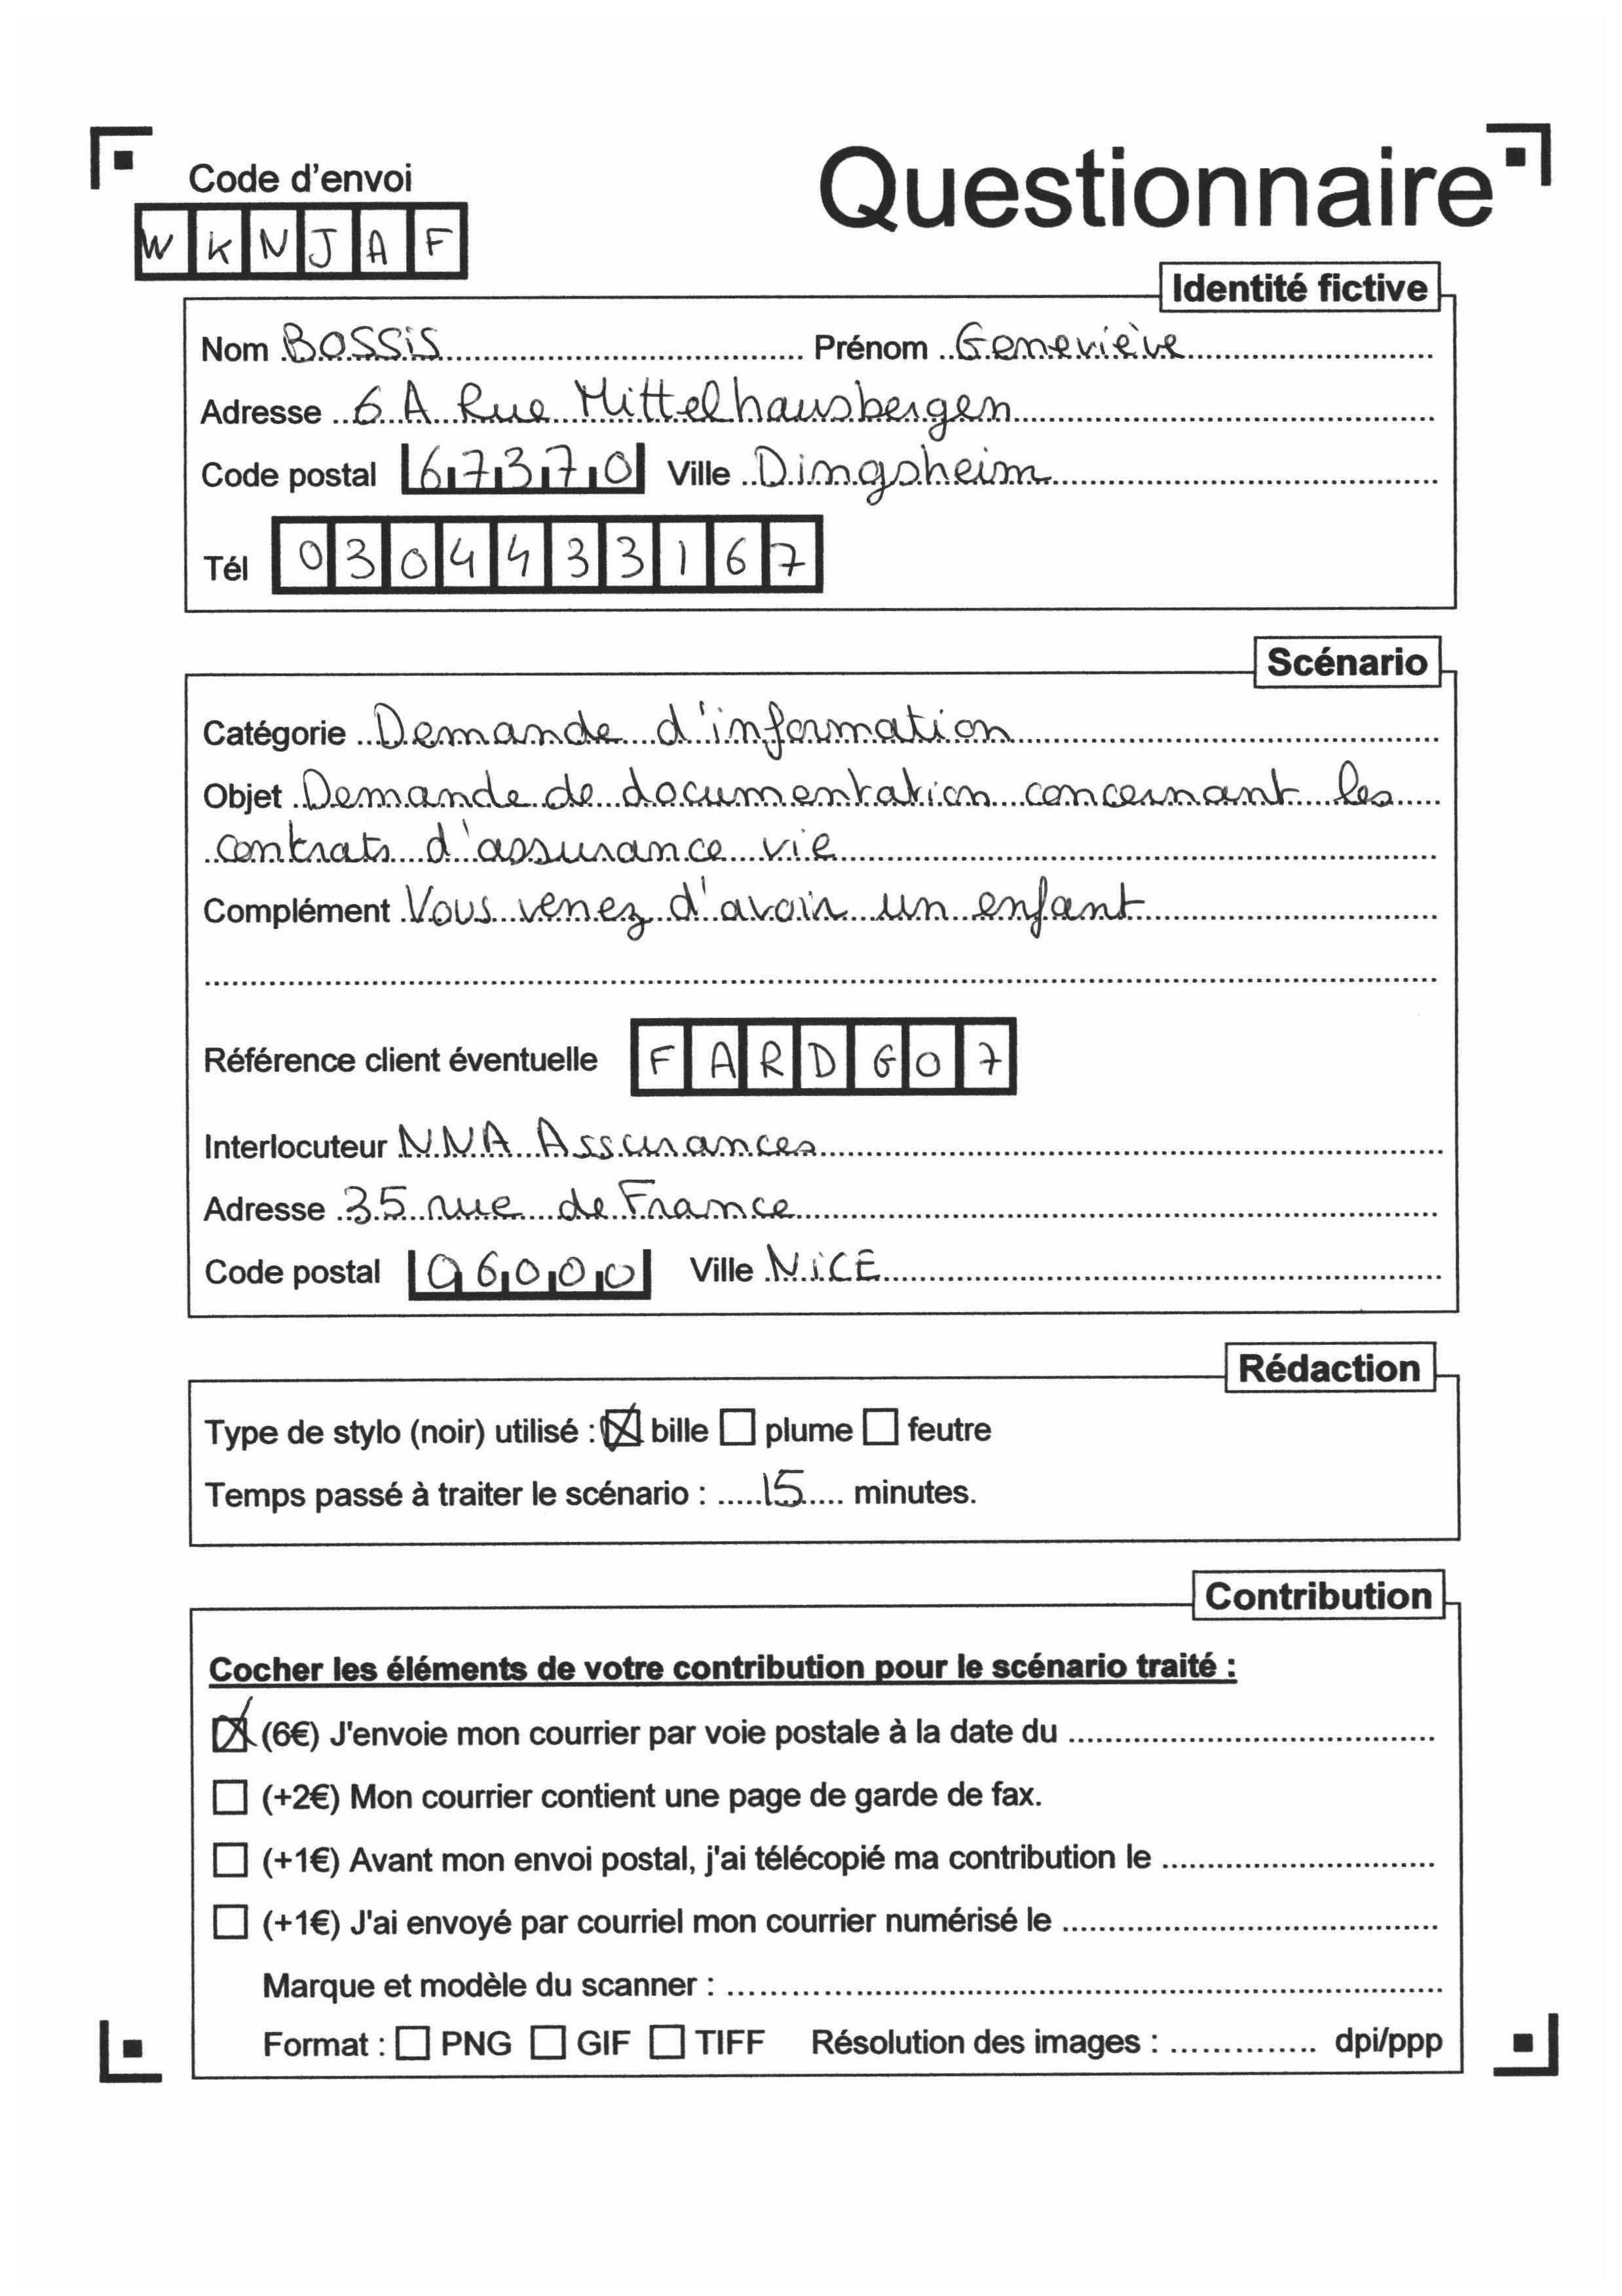 Code d'envoi
Questionnaire
WKNJAF
Identité fictive
Nom BOSSiS Prénom Geneviève
Adresse 6 A Rue Mittelhausbergen
Code postal 67370 Ville Dingsheim
Tél 0304433167
Scénario
Catégorie Demande d'information
Objet Demande de documentation concernant les
contrats d'assurance vie
Complément Vous venez d'avoir un enfant
Référence client éventuelle FARDG07
Interlocuteur NNA Assurances
Adresse 35 rue de France
Code postal 06000 Ville NiCE
Rédaction
Type de stylo (noir) utilisé : ☒ bille ☐ plume ☐ feutre
Temps passé à traiter le scénario : 15 minutes.
Contribution
Cocher les éléments de votre contribution pour le scénario traité :
☒ (6€) J'envoie mon courrier par voie postale à la date du
☐ (+2€) Mon courrier contient une page de garde de fax.
☐ (+1€) Avant mon envoi postal, j'ai télécopié ma contribution le
☐ (+1€) J'ai envoyé par courriel mon courrier numérisé le
Marque et modèle du scanner :
Format : ☐ PNG ☐ GIF ☐ TIFF Résolution des images : dpi/ppp